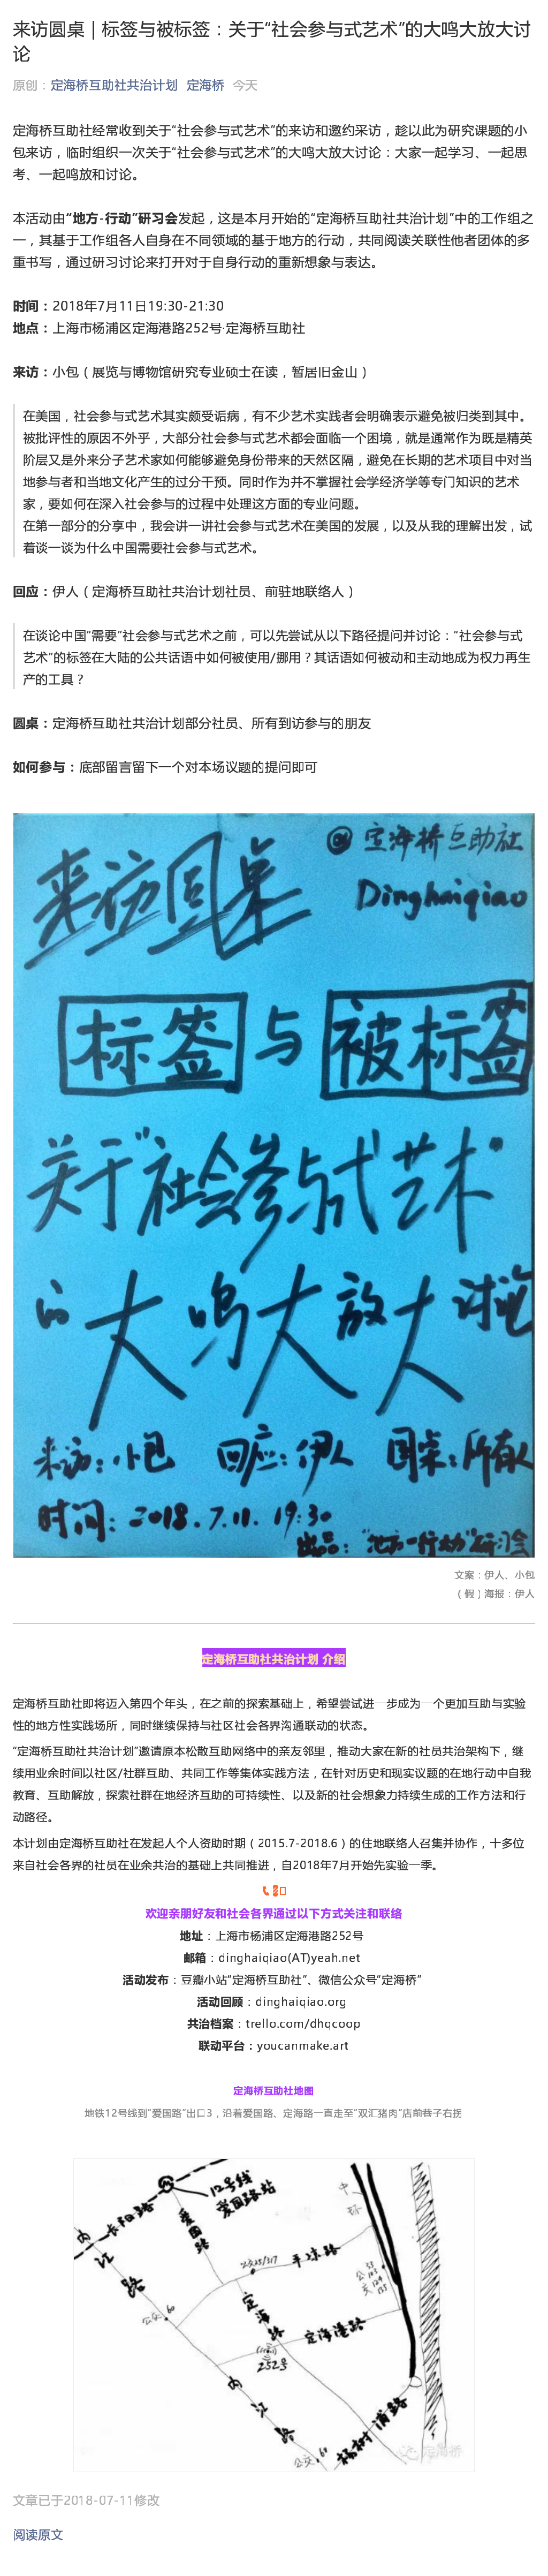 来访圆桌 | 标签与被标签：关于“社会参与式艺术”的大鸣大放大讨
论
原创：定海桥互助社共治计划 定海桥 今天
定海桥互助社经常收到关于“社会参与式艺术”的来访和邀约采访，趁以此为研究课题的小
包来访，临时组织一次关于“社会参与式艺术”的大鸣大放大讨论：大家一起学习、一起思
考、一起鸣放和讨论。
本活动由“地方-行动”研习会发起，这是本月开始的“定海桥互助社共治计划”中的工作组之
一，其基于工作组各人自身在不同领域的基于地方的行动，共同阅读关联性他者团体的多
重书写，通过研习讨论来打开对于自身行动的重新想象与表达。
时间：2018年7月11日19:30-21:30
地点：上海市杨浦区定海港路252号·定海桥互助社
来访：小包（展览与博物馆研究专业硕士在读，暂居旧金山）
在美国，社会参与式艺术其实颇受诟病，有不少艺术实践者会明确表示避免被归类到其中。
被批评性的原因不外乎，大部分社会参与式艺术都会面临一个困境，就是通常作为既是精英
阶层又是外来分子艺术家如何能够避免身份带来的天然区隔，避免在长期的艺术项目中对当
地参与者和当地文化产生的过分干预。同时作为并不掌握社会学经济学等专门知识的艺术
家，要如何在深入社会参与的过程中处理这方面的专业问题。
在第一部分的分享中，我会讲一讲社会参与式艺术在美国的发展，以及从我的理解出发，试
着谈一谈为什么中国需要社会参与式艺术。
回应：伊人（定海桥互助社共治计划社员、前驻地联络人）
在谈论中国“需要”社会参与式艺术之前，可以先尝试从以下路径提问并讨论：“社会参与式
艺术”的标签在大陆的公共话语中如何被使用/挪用？其话语如何被动和主动地成为权力再生
产的工具？
圆桌：定海桥互助社共治计划部分社员、所有到访参与的朋友
如何参与：底部留言留下一个对本场议题的提问即可
@定海桥互助社
来访圆桌
Dinghaiqiao
标签与被标签
关于“社会参与式艺术”
的大鸣大放大讨论
来访：小包 回应：伊人 圆桌：所有人
时间：2018.7.11 19:30
出品：“地方—行动”研习会
文案：伊人、小包
（假）海报：伊人
定海桥互助社共治计划 介绍
定海桥互助社即将迈入第四个年头，在之前的探索基础上，希望尝试进一步成为一个更加互助与实验
性的地方性实践场所，同时继续保持与社区社会各界沟通联动的状态。
“定海桥互助社共治计划”邀请原本松散互助网络中的亲友邻里，推动大家在新的社员共治架构下，继
续用业余时间以社区/社群互助、共同工作等集体实践方法，在针对历史和现实议题的在地行动中自我
教育、互助解放，探索社群在地经济互助的可持续性、以及新的社会想象力持续生成的工作方法和行
动路径。
本计划由定海桥互助社在发起人个人资助时期（2015.7-2018.6）的住地联络人召集并协作，十多位
来自社会各界的社员在业余共治的基础上共同推进，自2018年7月开始先实验一季。
欢迎亲朋好友和社会各界通过以下方式关注和联络
地址：上海市杨浦区定海港路252号
邮箱：dinghaiqiao(AT)yeah.net
活动发布：豆瓣小站“定海桥互助社”、微信公众号“定海桥”
活动回顾：dinghaiqiao.org
共治档案：trello.com/dhqcoop
联动平台：youcanmake.art
定海桥互助社地图
地铁12号线到“爱国路”出口3，沿着爱国路、定海路一直走至“双汇猪肉”店前巷子右拐
12号线
爱国路站
长阳路
爱国路
内江路
中环
平凉路
公交25/317
公交60
定海路
定海港路
252号
内江路
公交60
杨树浦路
定海桥
文章已于2018-07-11修改
阅读原文